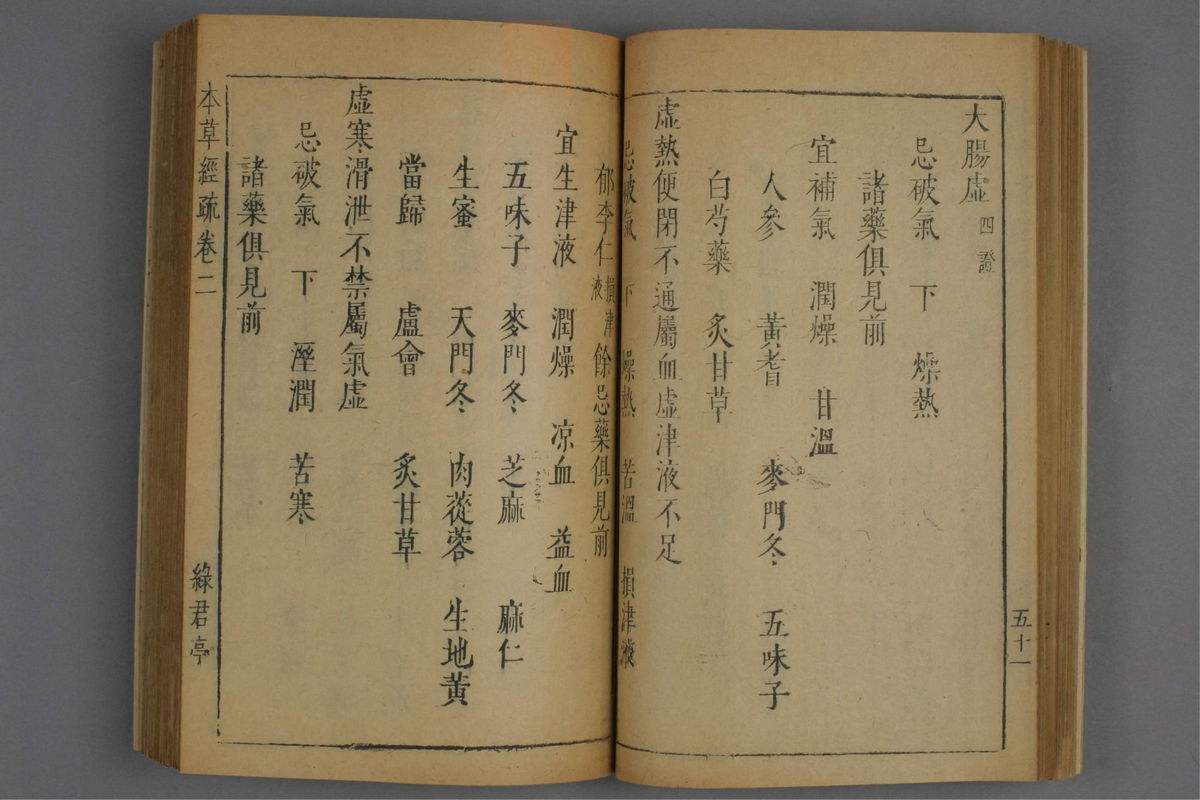 大腸虛四證
忌破氣 下 燥熱
諸藥俱見前
宜補氣 潤燥 甘溫
人參 黃耆 麥門冬 五味子
白芍藥 炙甘草
虛熱便閉不通屬血虛津液不足
忌破氣 下 燥熱 苦溫 損津液
五十一
郁李仁損津液餘忌藥俱見前
宜生津液 潤燥 凉血 益血
五味子 麥門冬 芝麻 麻仁
生蜜 天門冬 肉蓯蓉 生地黃
當歸 盧會 炙甘草
虛寒滑泄不禁屬氣虛
忌破氣 下 溼潤 苦寒
諸藥俱見前
本草經疏卷二 綠君亭